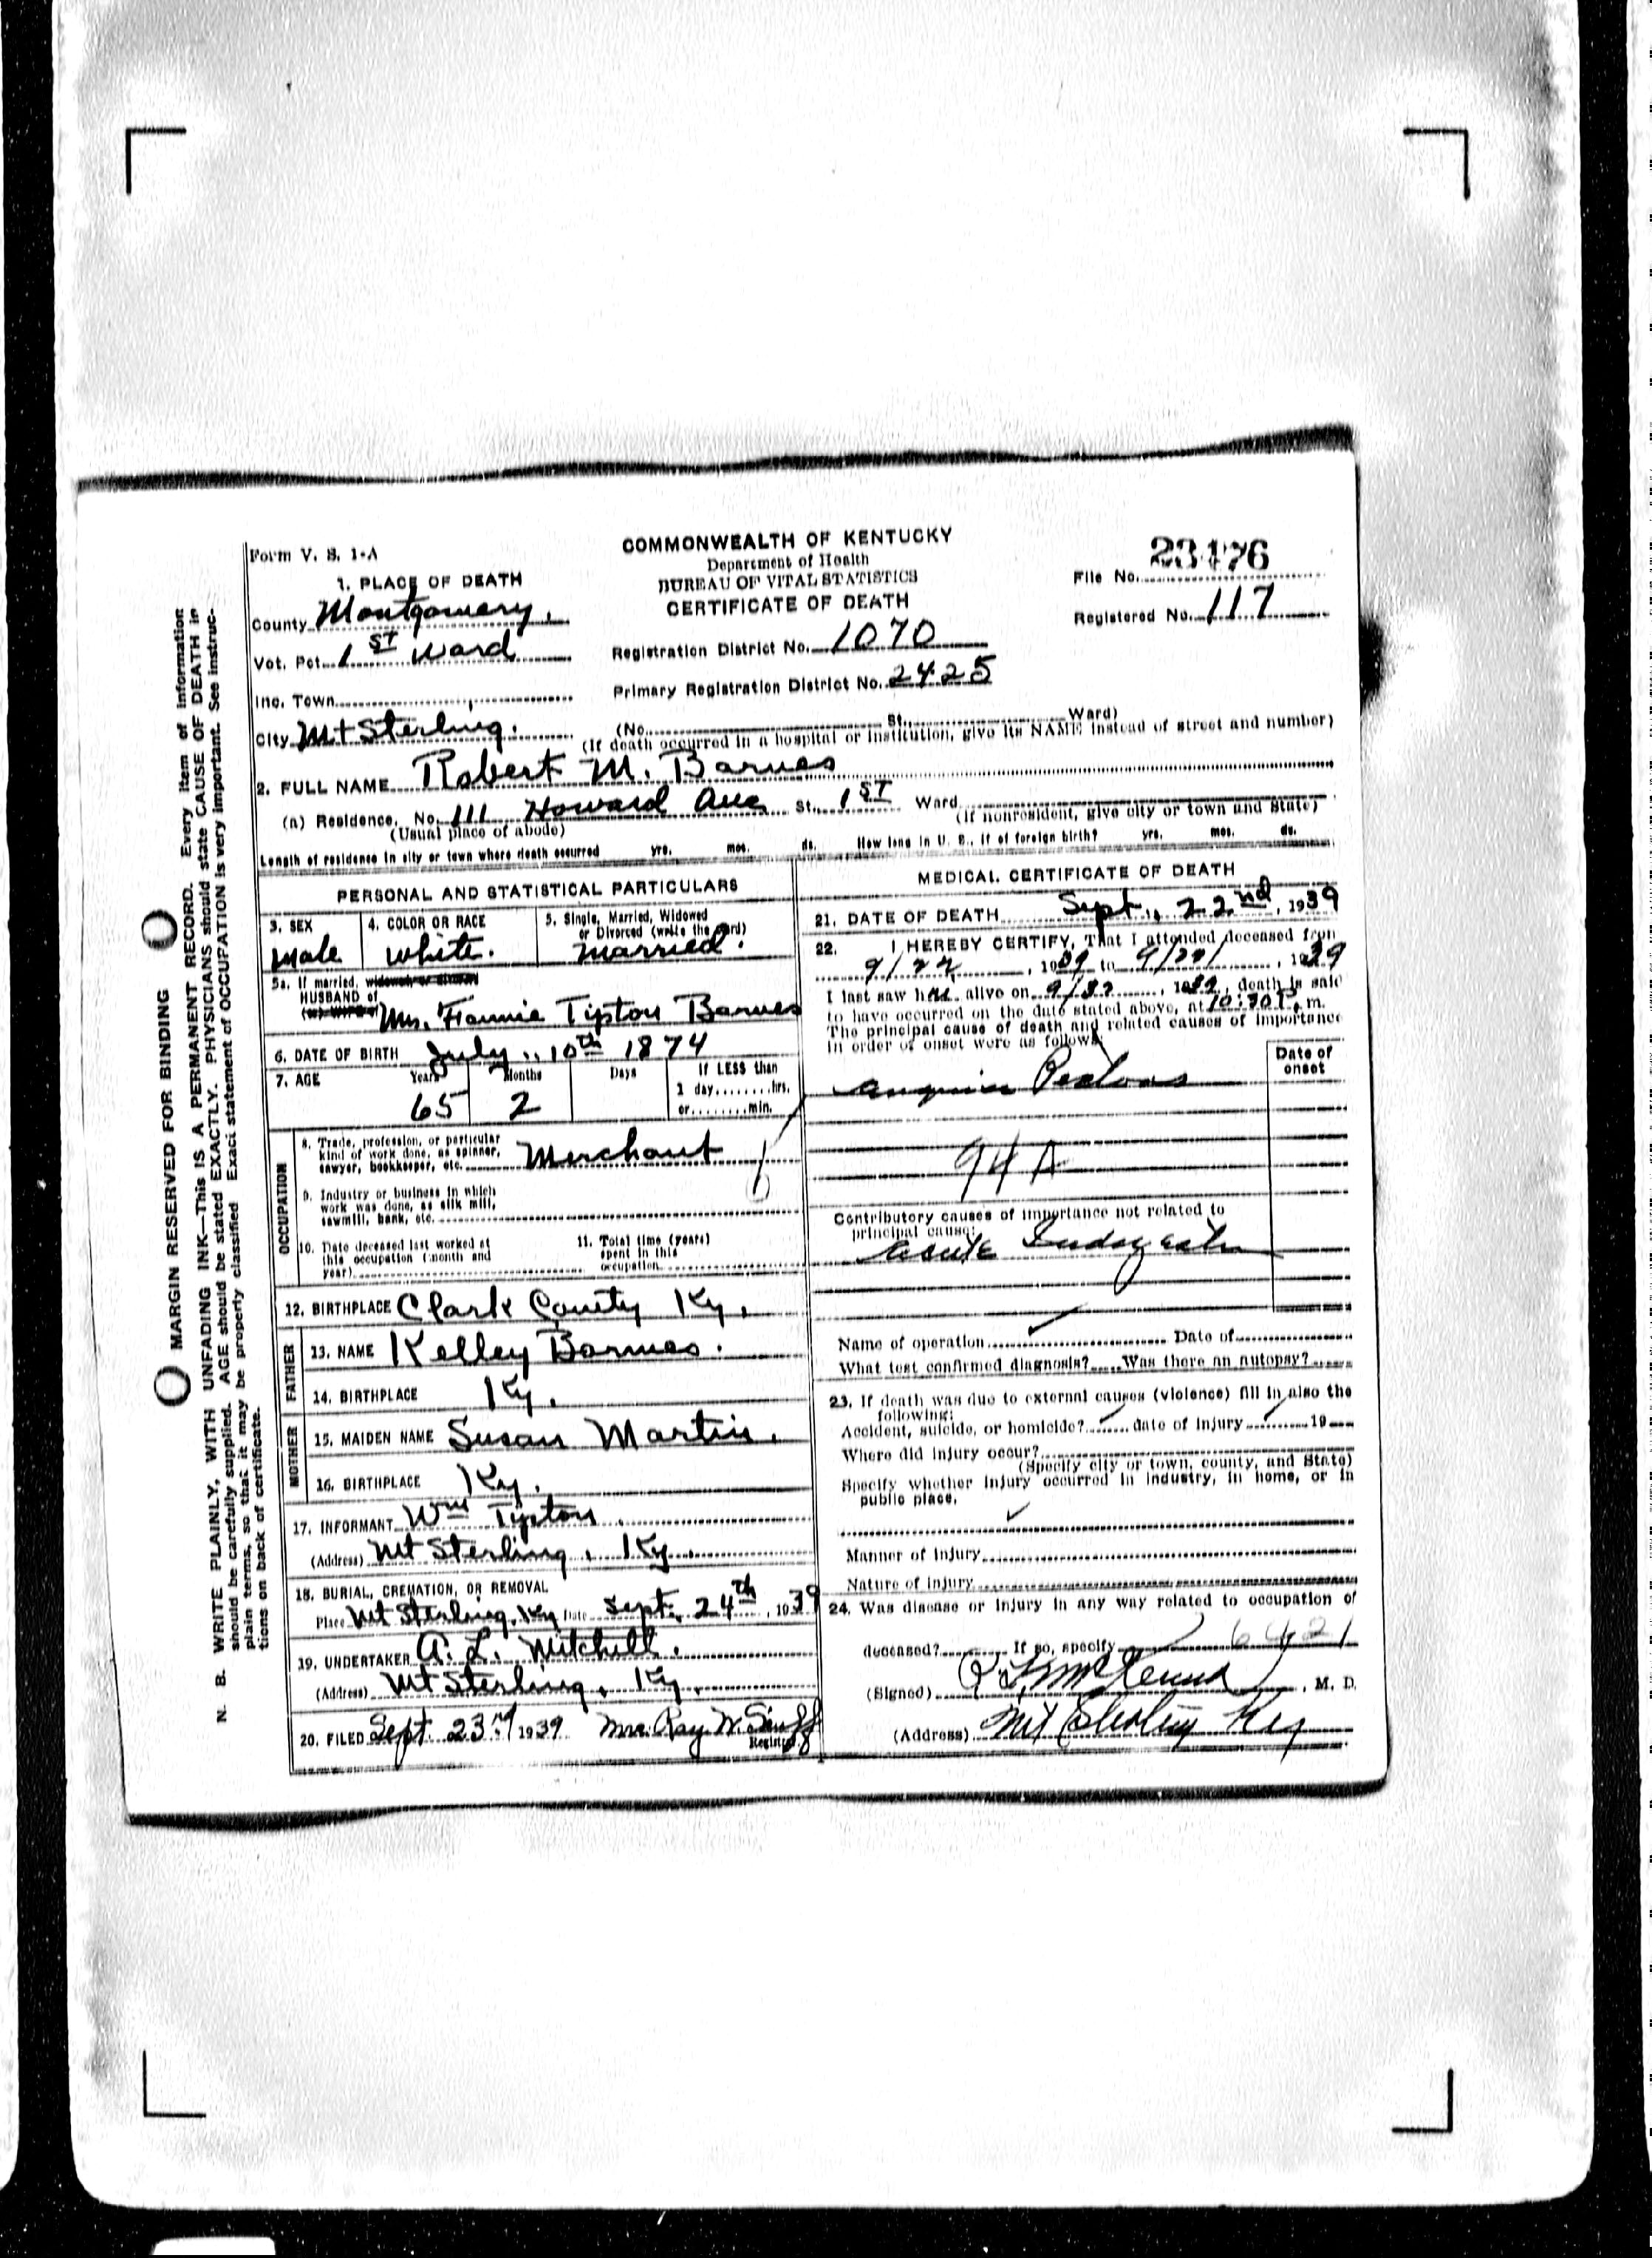 Form V. S. 1-A
COMMONWEALTH OF KENTUCKY
Department of Health
BUREAU OF VITAL STATISTICS
CERTIFICATE OF DEATH
File No. 23176
Registered No. 117
1. PLACE OF DEATH
County Montgomery.
Vot. Pct. 1st Ward
Registration District No. 1070
Inc. Town
Primary Registration District No. 2425
City Mt Sterling. (No. St. Ward)
(If death occurred in a hospital or institution, give its NAME instead of street and number)
2. FULL NAME Robert M. Barnes
(a) Residence, No. 111 Howard Ave St., 1st Ward
(Usual place of abode) (If nonresident, give city or town and State)
Length of residence in city or town where death occurred yrs. mos. ds. How long in U. S., if of foreign birth? yrs. mos. ds.
PERSONAL AND STATISTICAL PARTICULARS
3. SEX 4. COLOR OR RACE 5. Single, Married, Widowed
or Divorced (write the word)
Male white. Married.
5a. If married, widowed, or divorced
HUSBAND of
(or) WIFE of Mrs. Fannie Tipton Barnes
6. DATE OF BIRTH July 10th 1874
7. AGE Years Months Days If LESS than
1 day, hrs.
or min.
65 2
OCCUPATION
8. Trade, profession, or particular
kind of work done, as spinner,
sawyer, bookkeeper, etc. Merchant
9. Industry or business in which
work was done, as silk mill,
sawmill, bank, etc.
10. Date deceased last worked at
this occupation (month and
year)
11. Total time (years)
spent in this
occupation
12. BIRTHPLACE Clark County Ky.
FATHER
13. NAME Kelley Barnes.
14. BIRTHPLACE Ky.
MOTHER
15. MAIDEN NAME Susan Martin.
16. BIRTHPLACE Ky.
17. INFORMANT Wm Tipton.
(Address) Mt Sterling, Ky.
18. BURIAL, CREMATION, OR REMOVAL
Place Mt Sterling, Ky Date Sept. 24th, 1939
19. UNDERTAKER A. L. Mitchell.
(Address) Mt Sterling, Ky.
20. FILED Sept. 23rd 1939 Mrs. Ray W.
Registrar
MEDICAL CERTIFICATE OF DEATH
21. DATE OF DEATH Sept., 22nd, 1939
22. I HEREBY CERTIFY, That I attended deceased from
9/22, 1939 to 9/22, 1939
I last saw him alive on 9/22, 1939, death is said
to have occurred on the date stated above, at 10:30 P. m.
The principal cause of death and related causes of importance
in order of onset were as follows:
Date of
onset
Angina Pectoris
94 A
Contributory causes of importance not related to
principal cause:
Acute Indigestion
Name of operation Date of
What test confirmed diagnosis? Was there an autopsy?
23. If death was due to external causes (violence) fill in also the
following:
Accident, suicide, or homicide? date of injury 19
Where did injury occur?
(Specify city or town, county, and State)
Specify whether injury occurred in industry, in home, or in
public place.
Manner of Injury
Nature of Injury
24. Was disease or injury in any way related to occupation of
deceased? If so, specify
(Signed) M. D.
(Address) Mt Sterling Ky
MARGIN RESERVED FOR BINDING
N. B. WRITE PLAINLY, WITH UNFADING INK—This IS A PERMANENT RECORD. Every item of information
should be carefully supplied. AGE should be stated EXACTLY. PHYSICIANS should state CAUSE OF DEATH in
plain terms, so that it may be properly classified Exact statement of OCCUPATION is very important. See instruc-
tions on back of certificate.